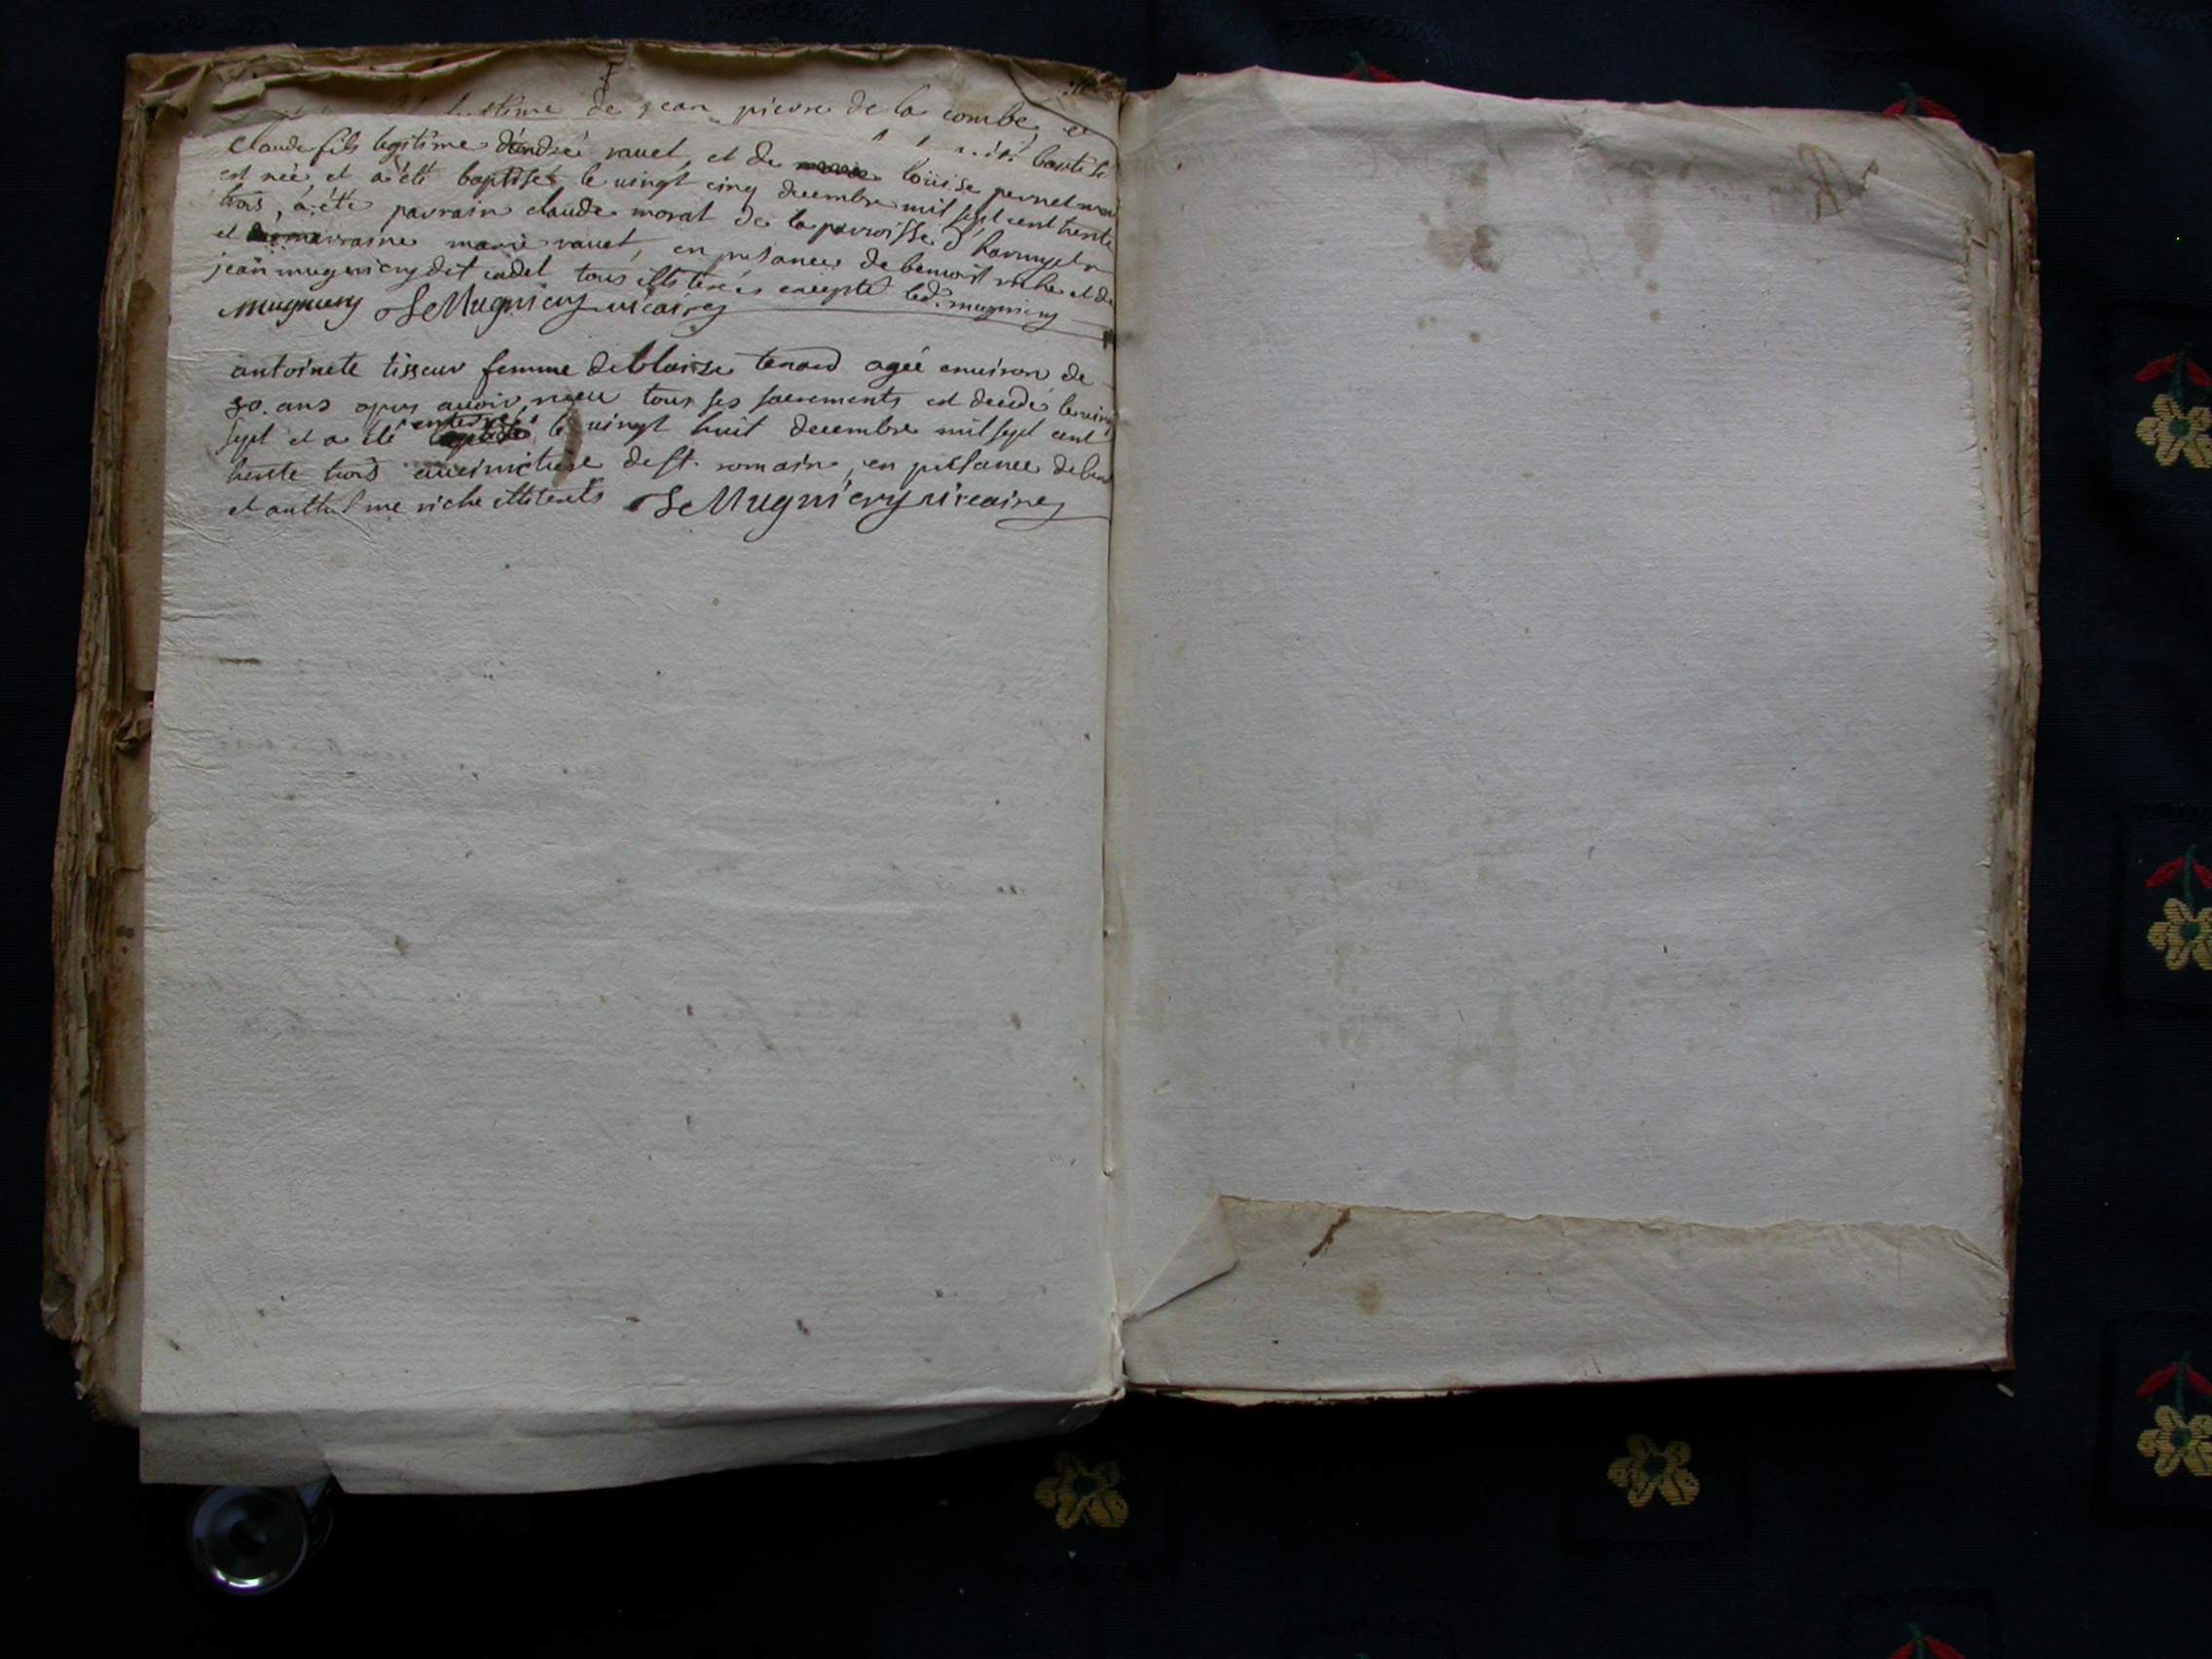 de jean pierre de la combe, et
baptisé
Claude fils legitime d'andré vauet, et de loüise pernet
est néé et a été baptisé le uingt cinq decembre mil sept cent trente
trois, a été parrain claude morat de la parroisse d'
et marraine marie vauet, en présance de benoist riche et de
jean mugniery dit cadet tous illiterés excepté led. mugniery
mugniery Mugniery uicaire
antoinete tisseur femme de blaise tenard ageé enuiron de
30. ans apres auoir reçeu tous ses sacrements est decedé le uingt
sept et a été enterreé le uingt huit decembre mil sept cent
trente trois au cimetiere de st. romain, en présance de
et anthelme riche illiterés Mugniery uicaire